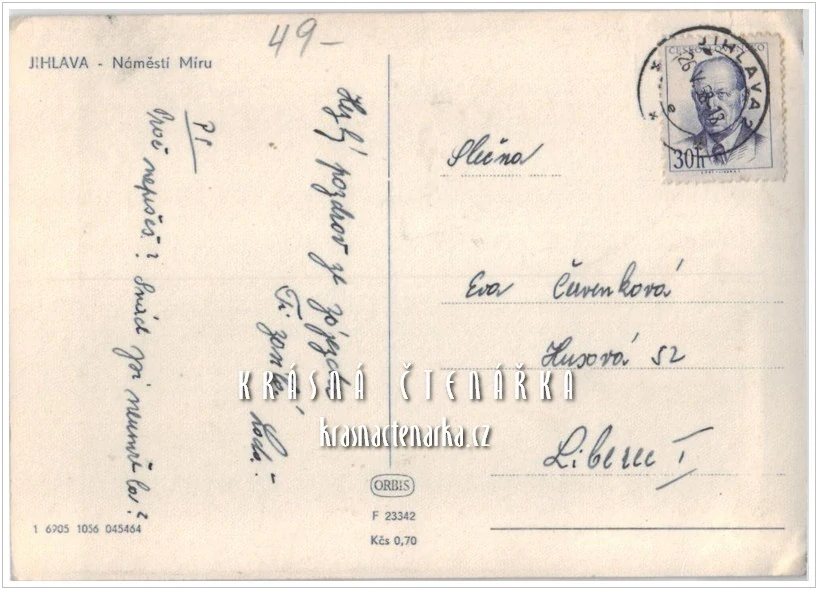 49-
JIHLAVA - Náměstí Míru
JIHLAVA 2
26
ČESKOSLOVENSKO
30h
Hezký pozdrav ze zájezdu
Ti zasílá
PS
Proč nepíšeš? Snad jsi neumřela?
Slečna
Eva Červenková
Husová 52
Liberec I
KRÁSNÁ ČTENÁŘKA
krasnactenarka.cz
ORBIS
F 23342
Kčs 0,70
1 6705 1056 045464